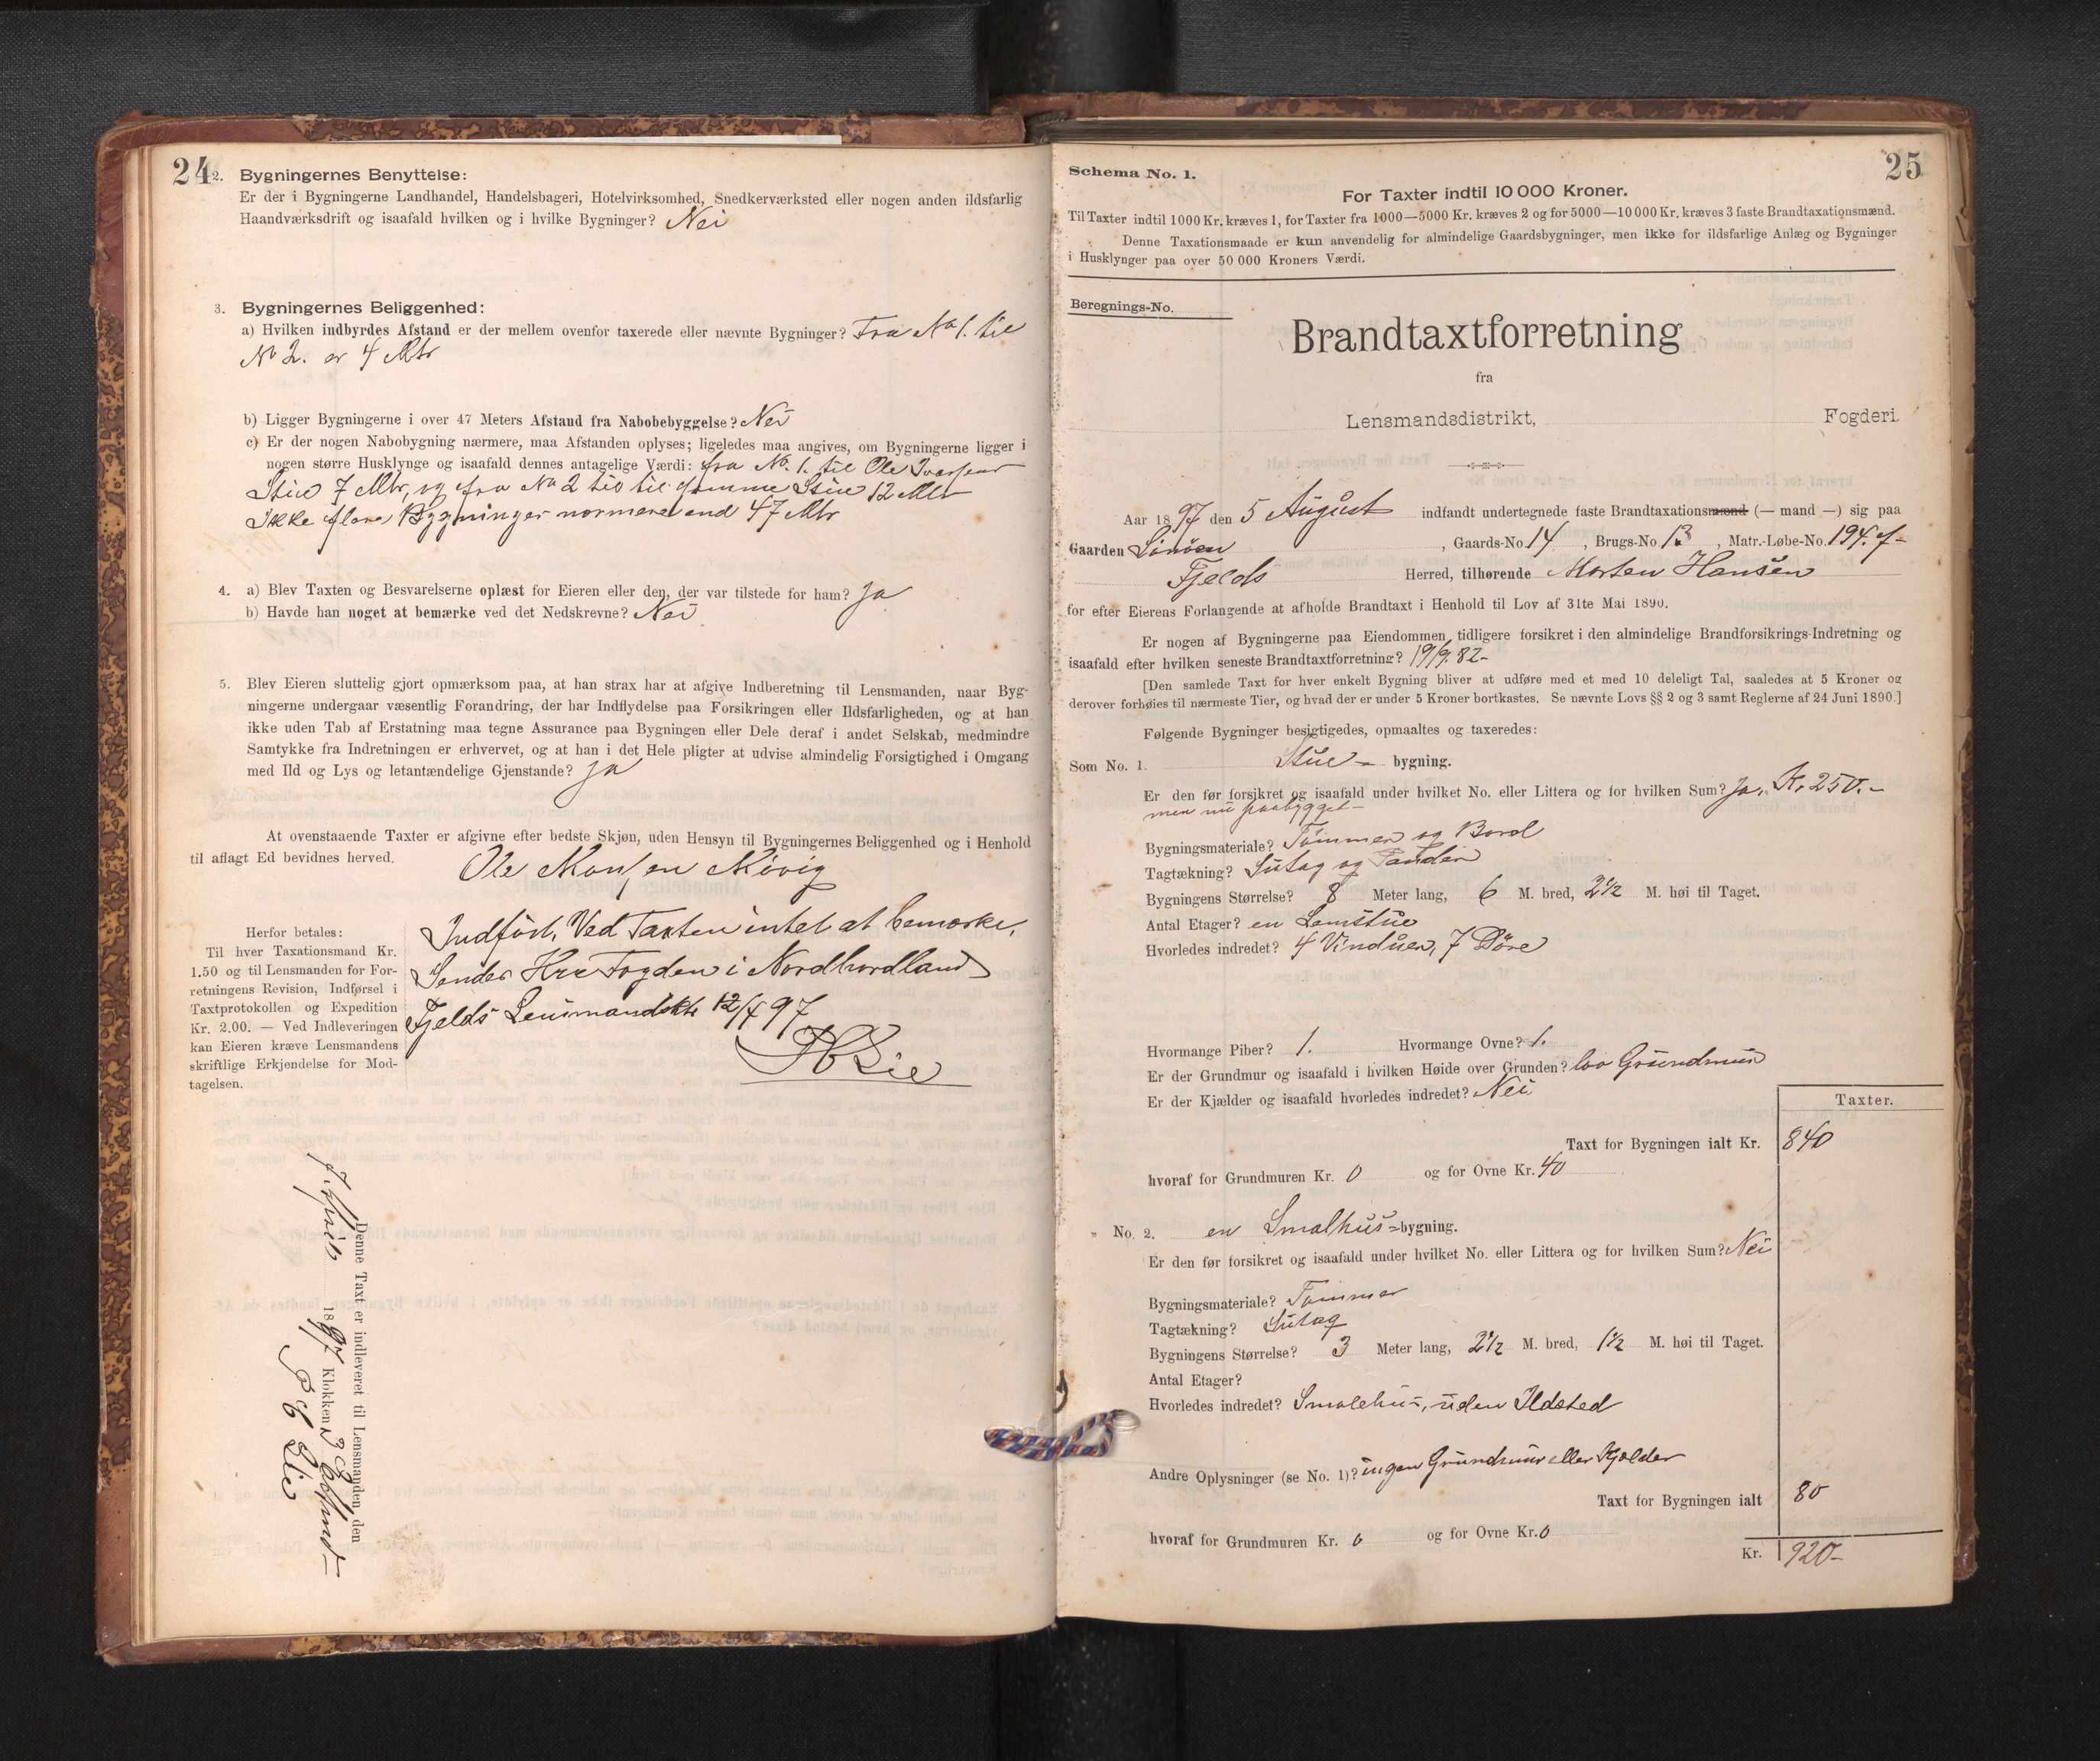 24
2. Bygningernes Benyttelse:
Er der i Bygningerne Landhandel, Handelsbageri, Hotelvirksomhed, Snedkerværksted eller nogen anden ildsfarlig
Haandværksdrift og isaafald hvilken og i hvilke Bygninger? Nei
3. Bygningernes Beliggenhed:
a) Hvilken indbyrdes Afstand er der mellem ovenfor taxerede eller nævnte Bygninger? Fra No 1. til
No 2. er 4 Mtr
b) Ligger Bygningerne i over 47 Meters Afstand fra Nabobebyggelse? Nei
c) Er der nogen Nabobygning nærmere, maa Afstanden oplyses; ligeledes maa angives, om Bygningerne ligger i
nogen større Husklynge og isaafald dennes antagelige Værdi: fra No. 1. til Ole
Stue 7 Mtr, og fra No 2 til Stue 12 Mtr
Ikke flere Bygninger nærmere end 47 Mtr
4. a) Blev Taxten og Besvarelserne oplæst for Eieren eller den, der var tilstede for ham? Ja
b) Havde han noget at bemærke ved det Nedskrevne? Nei
5. Blev Eieren sluttelig gjort opmærksom paa, at han strax har at afgive Indberetning til Lensmanden, naar Byg-
ningerne undergaar væsentlig Forandring, der har Indflydelse paa Forsikringen eller Ildsfarligheden, og at han
ikke uden Tab af Erstatning maa tegne Assurance paa Bygningen eller Dele deraf i andet Selskab, medmindre
Samtykke fra Indretningen er erhvervet, og at han i det Hele pligter at udvise almindelig Forsigtighed i Omgang
med Ild og Lys og letantændelige Gjenstande? Ja
At ovenstaaende Taxter er afgivne efter bedste Skjøn, uden Hensyn til Bygningernes Beliggenhed og i Henhold
til aflagt Ed bevidnes herved.
Ole Monsen Møvig
Indført, Ved Taxten intet at bemærke.
Sendes Hrr Fogden i Nordhordland
Fjelds Lensmandskt 12/4 97
Lie
Herfor betales:
Til hver Taxationsmand Kr.
1.50 og til Lensmanden for For-
retningens Revision, Indførsel i
Taxtprotokollen og Expedition
Kr. 2.00. — Ved Indleveringen
kan Eieren kræve Lensmandens
skriftlige Erkjendelse for Mod-
tagelsen.
Denne Taxt er indleveret til Lensmanden, den
1897 Klokken 3
Lie
25
Schema No. 1.
For Taxter indtil 10 000 Kroner.
Til Taxter indtil 1000 Kr. kræves 1, for Taxter fra 1000—5000 Kr. kræves 2 og for 5000—10000 Kr. kræves 3 faste Brandtaxationsmænd.
Denne Taxationsmaade er kun anvendelig for almindelige Gaardsbygninger, men ikke for ildsfarlige Anlæg og Bygninger
i Husklynger paa over 50 000 Kroners Værdi.
Beregnings-No.
Brandtaxtforretning
fra
Lensmandsdistrikt, Fogderi
Aar 1897 den 5 August indfandt undertegnede faste Brandtaxationsmænd (— mand —) sig paa
Gaarden , Gaards-No 14 , Brugs-No 13 , Matr.-Løbe-No. 194.f-
Fjelds Herred, tilhørende Morten Hansen
for efter Eierens Forlangende at afholde Brandtaxt i Henhold til Lov af 31te Mai 1890.
Er nogen af Bygningerne paa Eiendommen tidligere forsikret i den almindelige Brandforsikrings-Indretning og
isaafald efter hvilken seneste Brandtaxtforretning? 19/9.82-
[Den samlede Taxt for hver enkelt Bygning bliver at udføre med et med 10 deleligt Tal, saaledes at 5 Kroner og
derover forhøies til nærmeste Tier, og hvad der er under 5 Kroner bortkastes. Se nævnte Lovs §§ 2 og 3 samt Reglerne af 24 Juni 1890.]
Følgende Bygninger besigtigedes, opmaaltes og taxeredes:
Som No. 1. Stue- bygning.
Er den før forsikret og isaafald under hvilket No. eller Littera og for hvilken Sum? Ja, Kr 250.-
men nu paabygget-
Bygningsmateriale? Tømmer og Bord
Tagtækning? Sutag og Panden
Bygningens Størrelse? 8 Meter lang, 6 M. bred, 2½ M. høi til Taget.
Antal Etager? en Lemstue
Hvorledes indredet? 4 Vinduer, 7 Døre
Hvormange Piber? 1. Hvormange Ovne? 1.
Er der Grundmur og isaafald i hvilken Høide over Grunden? lav Grundmur
Er der Kjælder og isaafald hvorledes indredet? Nei
Taxter.
Taxt for Bygningen ialt Kr. 840
hvoraf for Grundmuren Kr. 0 og for Ovne Kr. 40
" No. 2. en Smalhus-bygning.
Er den før forsikret og isaafald under hvilket No. eller Littera og for hvilken Sum? Nei
Bygningsmateriale? Tømmer
Tagtækning? Sutag
Bygningens Størrelse? 3 Meter lang, 2½ M. bred, 1½ M. høi til Taget.
Antal Etager?
Hvorledes indredet? Smalehus, uden Ildsted
Andre Oplysninger (se No. 1)? ingen Grundmur eller Kjelder
Taxt for Bygningen ialt 80
hvoraf for Grundmuren Kr. 0 og for Ovne Kr. 0
Kr. 920-